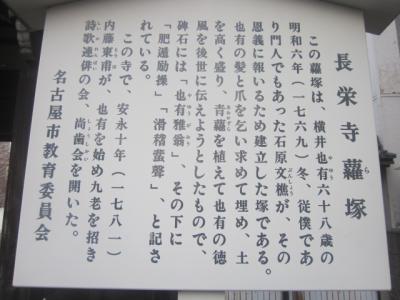 長栄寺蘿塚
この蘿塚は、横井也有六十八歳の
明和六年(一七六九)冬、従僕であ
り門人でもあった石原文樵が、その
恩義に報いるため建立した塚である。
也有の髪と爪を乞い求めて埋め、土
を高く盛り、青蘿を植えて也有の徳
風を後世に伝えようとしたもので、
碑石には「也有雅翁」、その下に
「肥遁励操」「滑稽蜚聲」、と記さ
れている。
この寺で、安永十年(一七八一)
内藤東甫が、也有を始め九老を招き
詩歌連俳の会、尚歯会を開いた。
名古屋市教育委員会